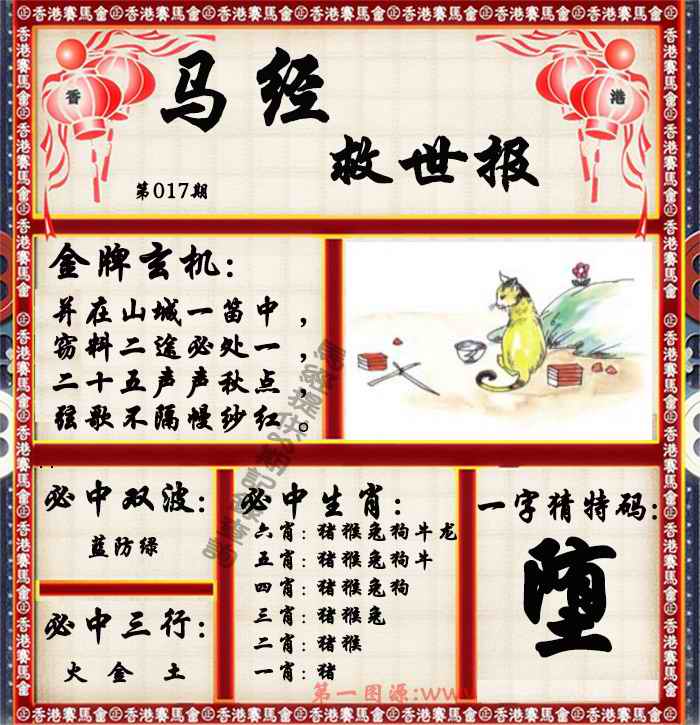 香港賽馬會
香 港
马经
救世报
第017期
金牌玄机:
并在山城一笛中，
窃料二途必处一，
二十五声声秋点，
弦歌不隔幔纱红。
必中双波:
蓝防绿
必中三行:
火 金 土
必中生肖:
六肖: 猪猴兔狗牛龙
五肖: 猪猴兔狗牛
四肖: 猪猴兔狗
三肖: 猪猴兔
二肖: 猪猴
一肖: 猪
一字猜特码:
堕
第一图源:www